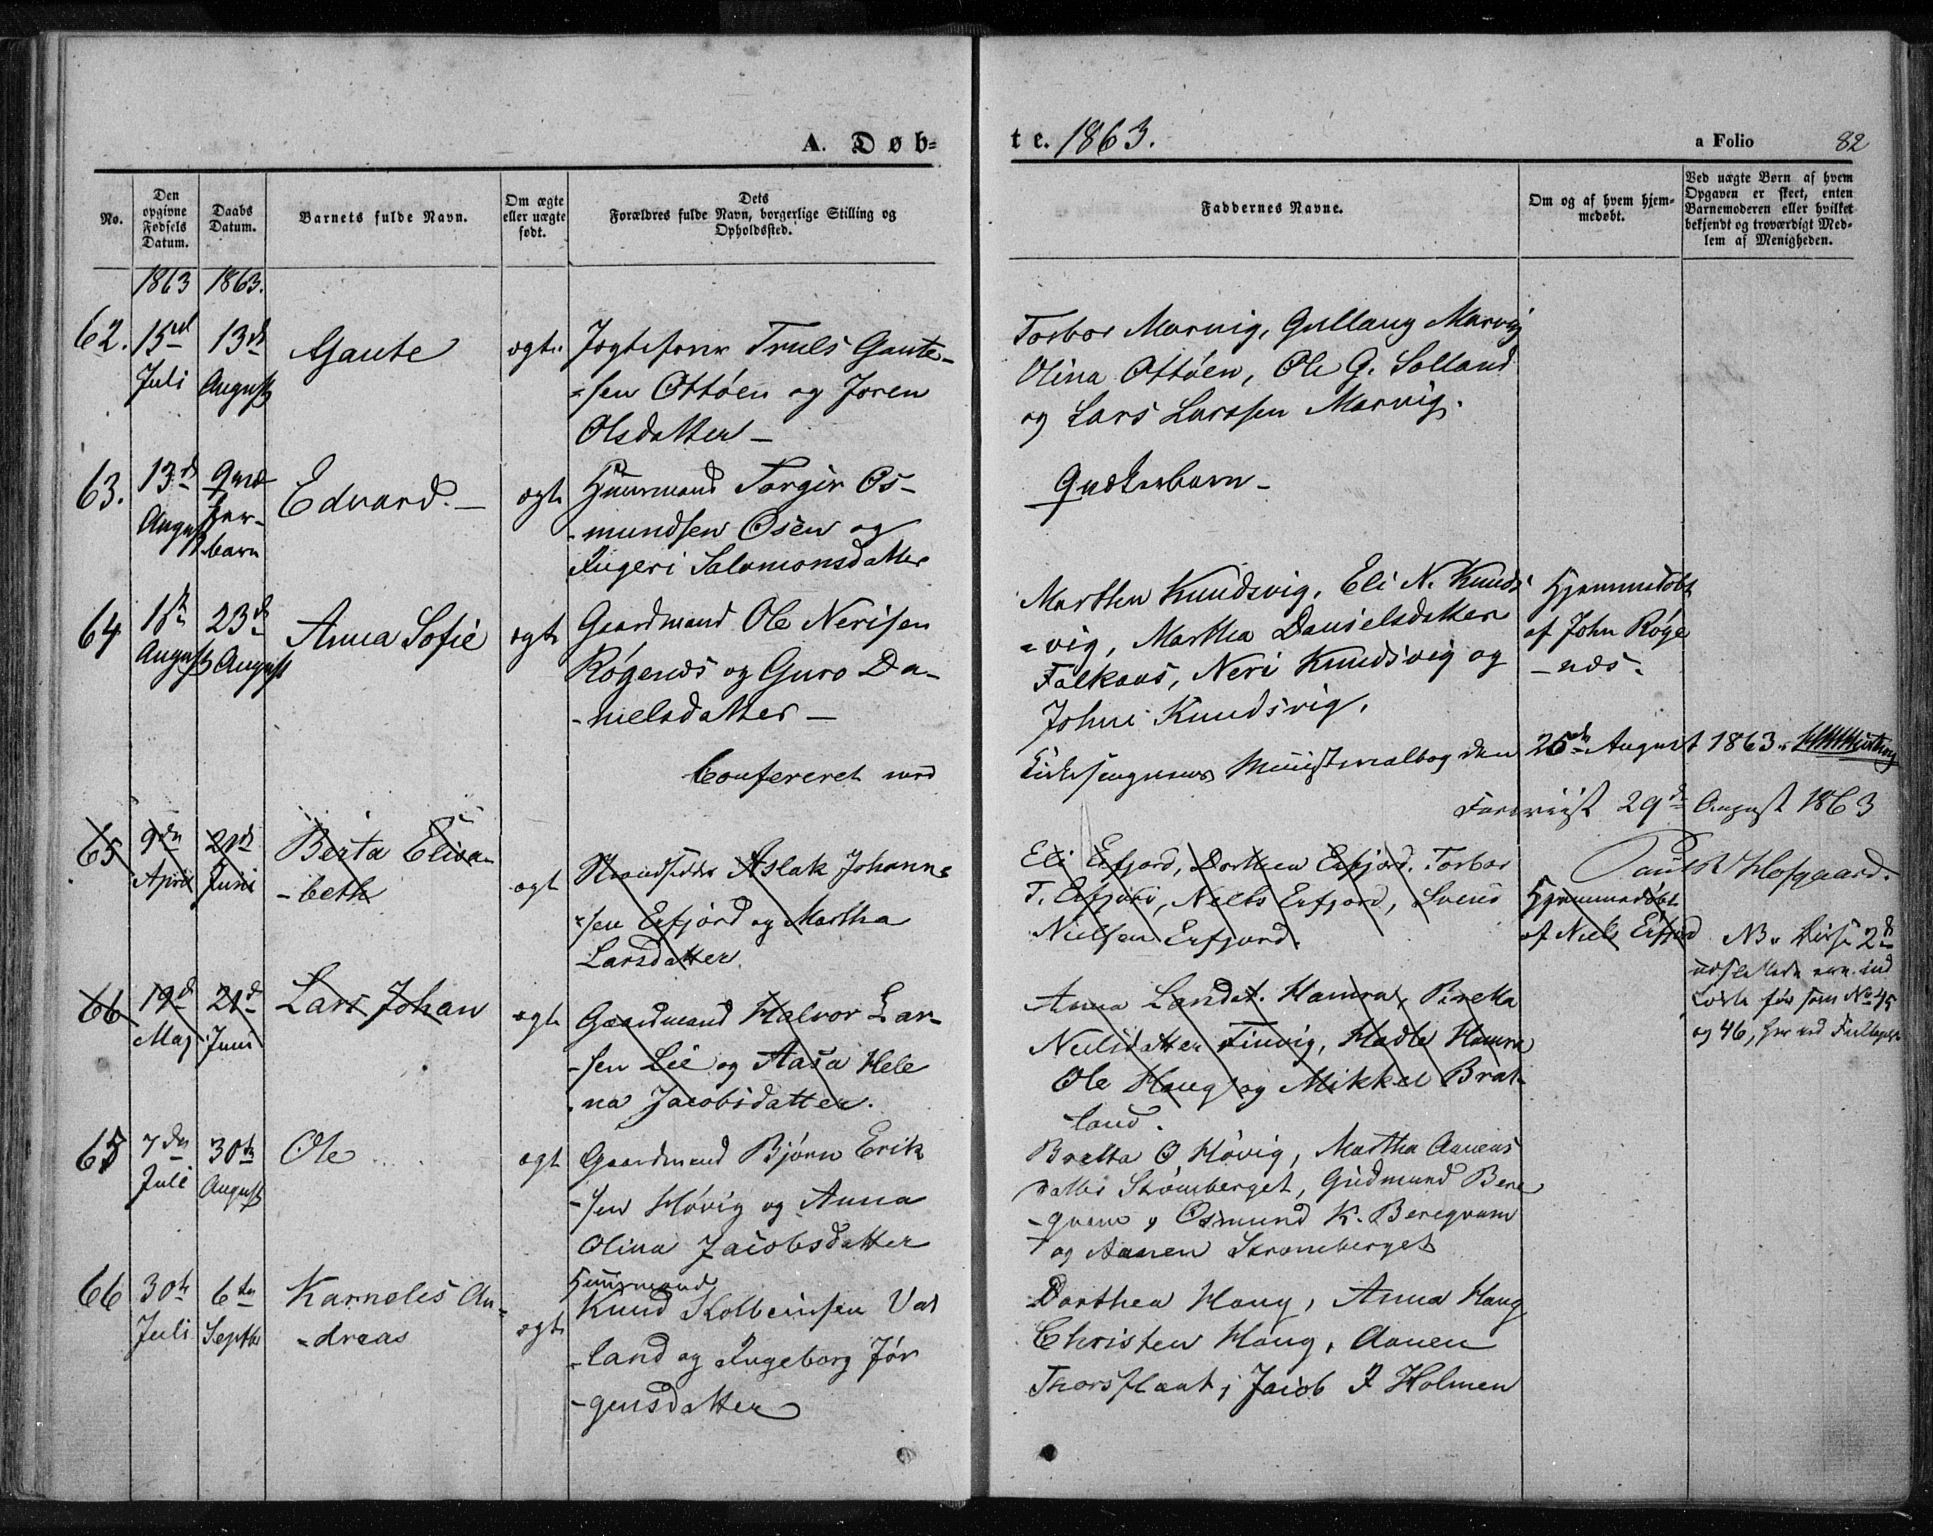 A. Døb-
te. 1863.
a Folio 82
No.
Den opgivne Fødsels Datum.
Daabs Datum.
Barnets fulde Navn.
Om ægte eller uægte født.
Dets Forældres fulde Navn, borgerlige Stilling og Opholdssted.
Faddernes Navne.
Om og af hvem hjem-
medøbt.
Ved uægte Børn af hvem
Opgaven er skeet, enten
Barnemoderen eller hvilket
bekjendt og troværdigt Med-
lem af Menigheden.
1863 1863.
62. 15de Juli 13de August Gaute ægte
Truls Gaute-
-sen Ottøen og Joren
Olsdatter -
Torbor Marvig, Gullaug Marvig
Olina Ottøen, Ole G. Solland
og Lars Larssen Marvig.
63. 13de August Qvæ-
ker-
barn
Edvard. - ægte
Huusmand Torgier Os-
-mundsen Osen og
Ingeri Salomonsdatter
Qvækerbarn -
64 1ste August 23de August Anna Sofie ægte
Gaardmand Ole Nerisen
Røgenes og Guro Da-
-nielsdatter -
Marthea Knudsvig, Eli N. Knuds
-vig, Martha Danielsdatter
Falkaas, Neri Knudsvig og
Johne Knudsvig.
Hjemmedøbt
af John Røge
-næs.
Confereret med
Kirkesangerens Ministerialbog den 26de August 1863.
Foreviist 29de August 1863
Hofgaard.
65 9de April 21de Juni Berta Elisa-
-beth ægte
Strandsidder Aslak Johanne
-sen Erfjord og Martha
Larsdatter
Eli Erfjord, Dorthea Erfjord, Torbor
T. Erfjord, Niels Erfjord, Svend
Nielsen Erfjord.
Hjemmedøbt
af Niels Erfjord
NB. Disse 2de
udslettede ere ind
førte før som No 45
og 46, her ved Feiltagelse
66 19de Maj 21de Juni Lars Johan ægte
Gaardmand Halvor Lar-
-sen Lie og Aasa Hele
-na Jacobsdatter.
Anna Landat. Hamra, Bretta
Nielsdatter Finvig, Hadle Hamra
Ole Haug og Mikkel Brat-
-land.
65 7de Juli 30te August Ole ægte
Gaardmand Bjørn Erik
-sen Høvig og Anna
Olina Jacobsdatter
Bretta O Høvig, Martha Aanens
datter Strømberget, Gudmund Bere
-qvam, Osmund K. Bereqvam
og Aanen Strømberget
66 30te Juli 6te Septbr Karnelis An-
-dreas ægte
Huusmand
Knud Kolbeinsen Vat
-land og Ingeborg Jør
-gensdatter
Dorthea Haug, Anna Haug
Christen Haug, Aanen
Thorsflaat, Jacob J Holmen